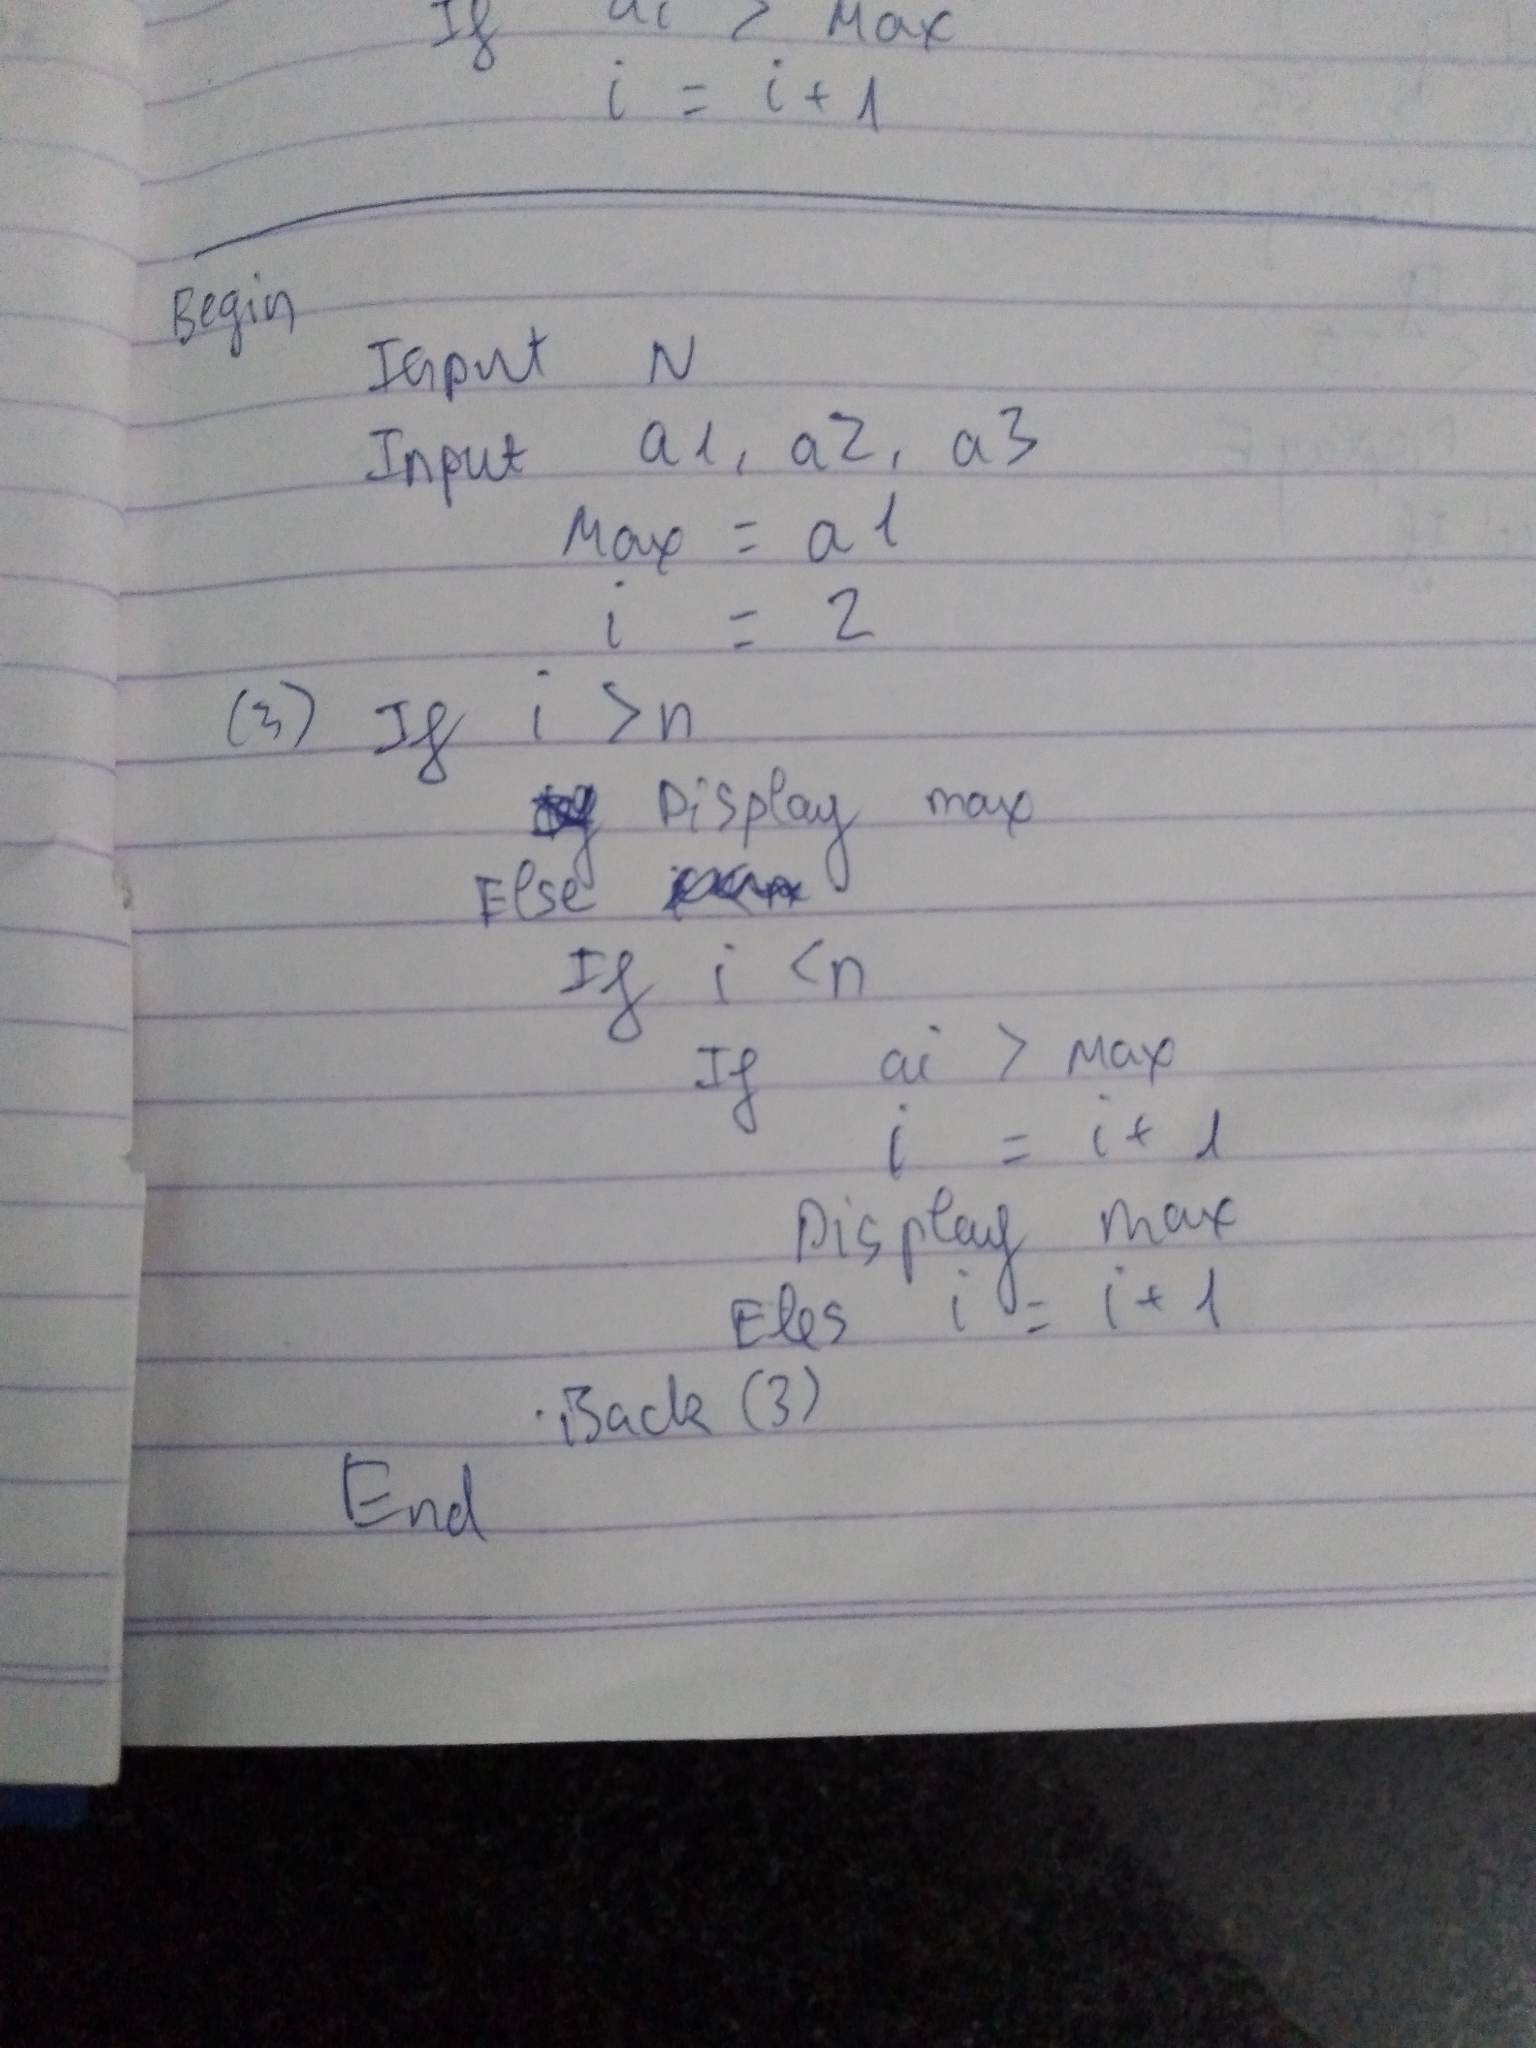 If ai > Max
i = i + 1
Begin
Input N
Input a1, a2, a3
Max = a1
i = 2
(3) If i > n
Display max
Else
If i < n
If ai > Max
i = i + 1
Display max
Eles i = i + 1
Back (3)
End